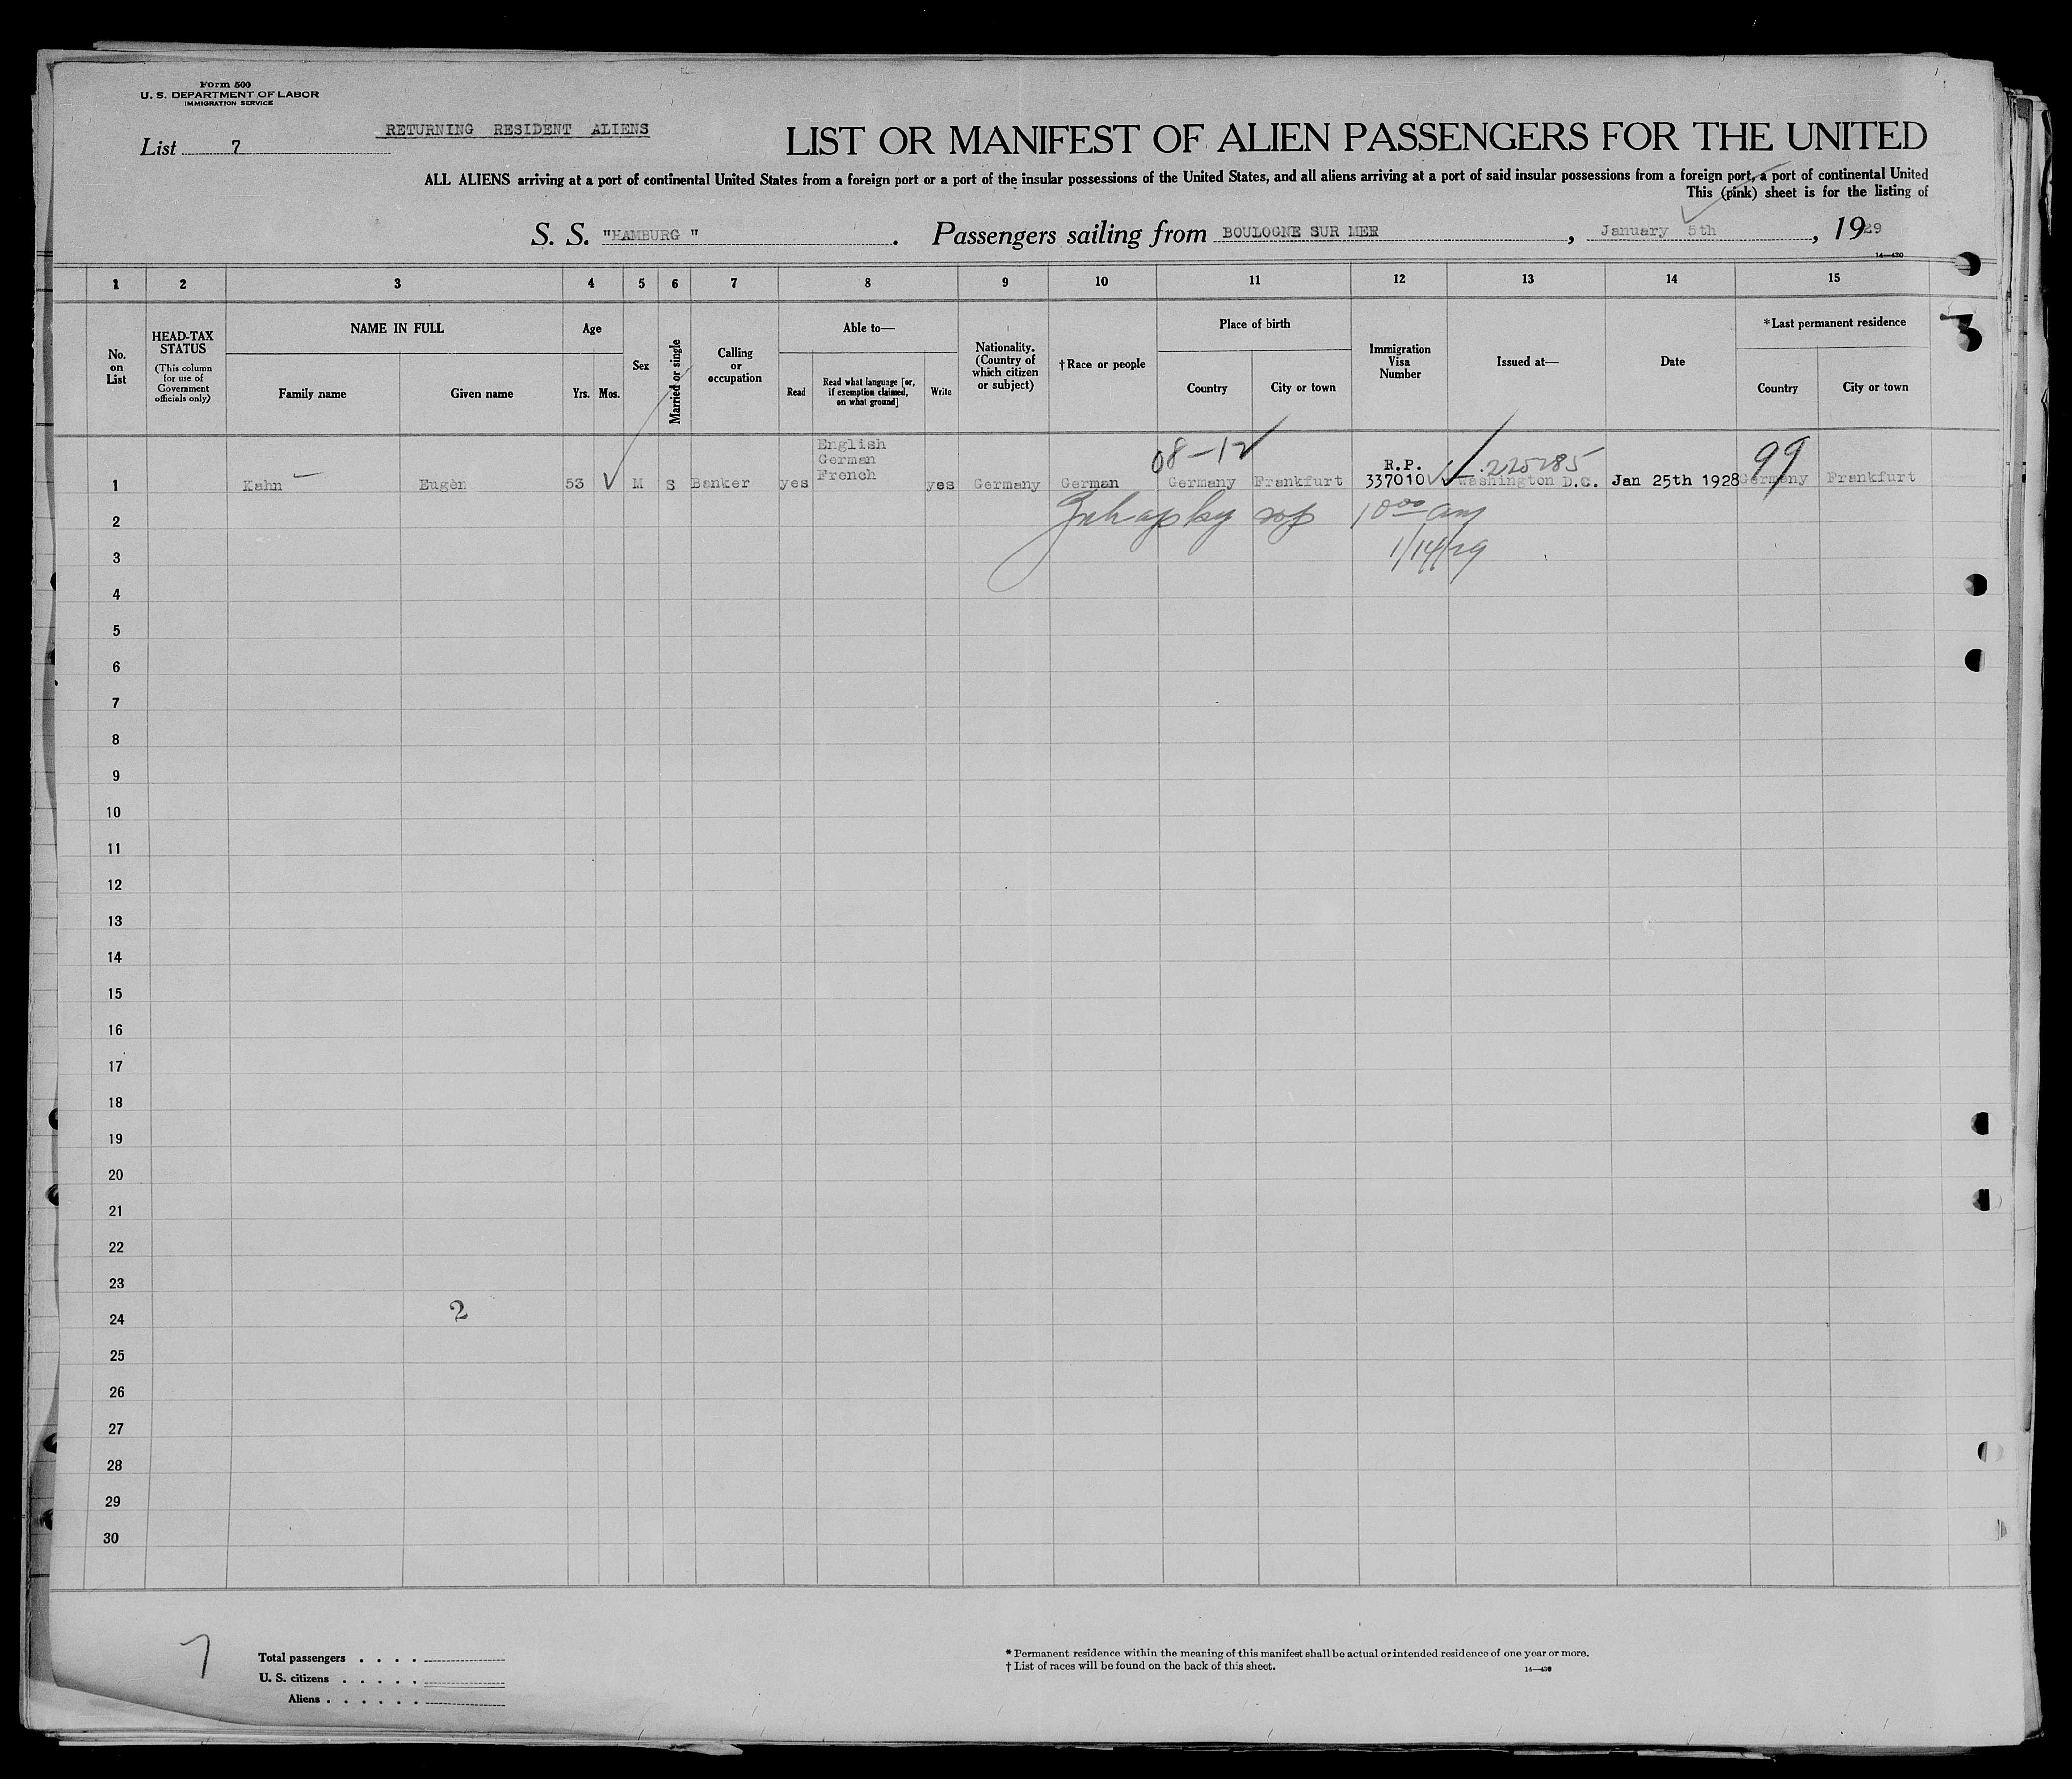 Form 500
U. S. DEPARTMENT OF LABOR
IMMIGRATION SERVICE
RETURNING RESIDENT ALIENS
List 7
LIST OR MANIFEST OF ALIEN PASSENGERS FOR THE UNITED
ALL ALIENS arriving at a port of continental United States from a foreign port or a port of the insular possessions of the United States, and all aliens arriving at a port of said insular possessions from a foreign port, a port of continental United
This (pink) sheet is for the listing of
S. S. "HAMBURG ". Passengers sailing from BOULOGNE SUR MER, January 5th, 1929
14—430
1 2 3 4 5 6 7 8 9 10 11 12 13 14 15
3
No. on List
HEAD-TAX STATUS
(This column for use of Government officials only)
NAME IN FULL
Family name
Given name
Age
Yrs. Mos.
Sex
Married or single
Calling or occupation
Able to—
Read
Read what language [or, if exemption claimed, on what ground]
Write
Nationality. (Country of which citizen or subject)
†Race or people
Place of birth
Country
City or town
Immigration Visa Number
Issued at—
Date
*Last permanent residence
Country
City or town
English
German
08-12
R.P.
.225285
99
1 Kahn Eugèn 53 M S Banker yes French yes Germany German Germany Frankfurt 337010 Washington D.C. Jan 25th 1928 Germany Frankfurt
2 10 00 am
3 1/14/29
4
5
6
7
8
9
10
11
12
13
14
15
16
17
18
19
20
21
22
23
24 2
25
26
27
28
29
30
7
Total passengers . . . .
U. S. citizens . . . . .
Aliens . . . . . .
* Permanent residence within the meaning of this manifest shall be actual or intended residence of one year or more.
† List of races will be found on the back of this sheet.
14—430